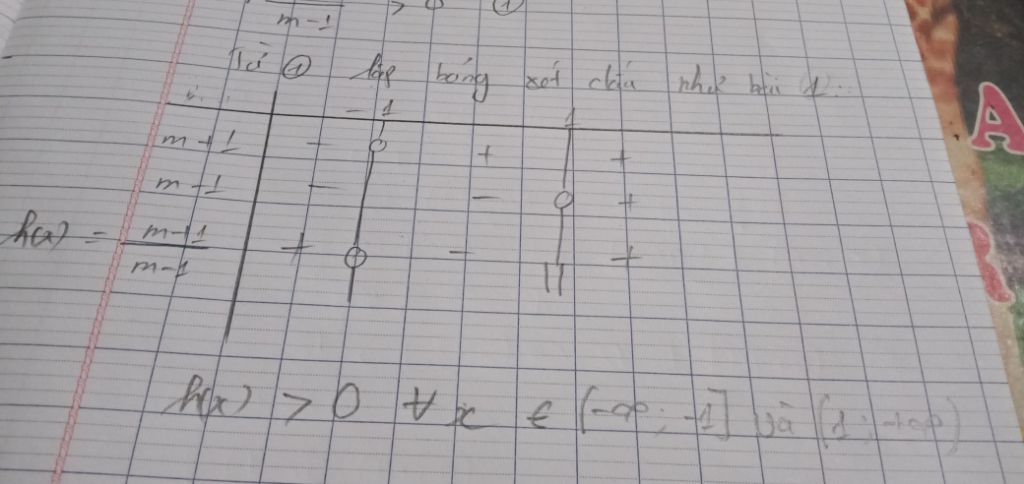 m-1 > 0 ①
Từ ① lập bảng xét dấu như bài 1:
-1 1
m+1 - + +
m-1 - - +
h(x) = m+1 + - +
m-1
h(x) > 0 ∀x ∈ (-∞; -1] và (1; +∞)
A
R